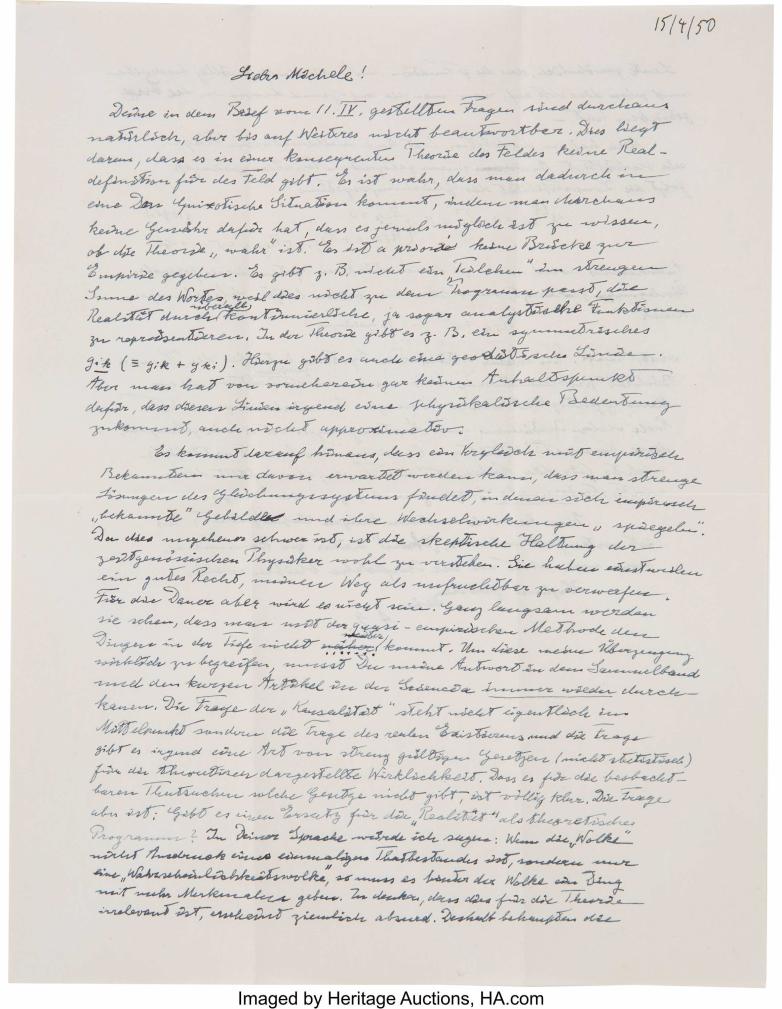 15/4/50
Lieber Michele!
Deine in dem Brief vom 11. IV. gestellten Fragen sind durchaus
natürlich, aber bis auf Weiteres nicht beantwortbar. Dies liegt
daran, dass es in einer konsequenten Theorie des Feldes keine Real-
definition für das Feld gibt. Es ist wahr, dass man dadurch in
eine Don Quixotische Situation kommt, indem man durchaus
keine Gewähr dafür hat, dass es jemals möglich ist zu wissen,
ob die Theorie „wahr" ist. Es ist a priori keine Brücke zur
Empirie gegeben. Es gibt z. B. nicht ein „Teilchen" im strengen
Sinne des Wortes, weil dies nicht zu dem Programm passt, die
Realität durch überall kontinuierliche, ja sogar analytische Funktionen
zu repräsentieren. In der Theorie gibt es z. B. ein symmetrisches
gik (≡ gik + gki). Hierzu gibt es auch eine geodätische Linie.
Aber man hat von vorneherein gar keinen Anhaltspunkt
dafür, dass diesen Linien irgend eine physikalische Bedeutung
zukommt, auch nicht approximativ.
Es kommt darauf hinaus, dass ein Vergleich mit empirisch
Bekanntem nur davon erwartet werden kann, dass man strenge
Lösungen des Gleichungssystems findet, in denen sich empirisch
„bekannte" Gebilde und ihre Wechselwirkungen „spiegeln".
Da dies ungeheuer schwer ist, ist die skeptische Haltung der
zeitgenössischen Physiker wohl zu verstehen. Sie haben einstweilen
ein gutes Recht, meinen Weg als unfruchtbar zu verwerfen.
Für die Dauer aber wird es nicht sein. Ganz langsam werden
sie sehen, dass man mit der quasi-empirischen Methode den
Dingen in der Tiefe nicht näher kommt. Um diese meine Überzeugung
wirklich zu begreifen, musst Du meine Antwort in dem Sammelband
und den kurzen Artikel in der Scienca immer wieder durch-
kauen. Die Frage der „Kausalität" steht nicht eigentlich im
Mittelpunkt sondern die Frage des realen Existierens und die Frage
gibt es irgend eine Art von streng gültigen Gesetzen (nicht statistisch)
für die theoretisch dargestellte Wirklichkeit. Dass es für die beobacht-
baren Thatsachen solche Gesetze nicht gibt, ist völlig klar. Die Frage
aber ist: Gibt es einen Ersatz für die „Realität" als theoretisches
Programm? In Deiner Sprache würde ich sagen: Wenn die „Wolke"
nicht Ausdruck eines einmaligen Thatbestandes ist, sondern nur
eine „Wahrscheinlichkeitswolke", so muss es hinter der Wolke ein Ding
mit mehr Merkmalen geben. Zu denken, dass dies für die Theorie
irrelevant ist, erscheint ziemlich absurd. Deshalb behaupten die
Imaged by Heritage Auctions, HA.com